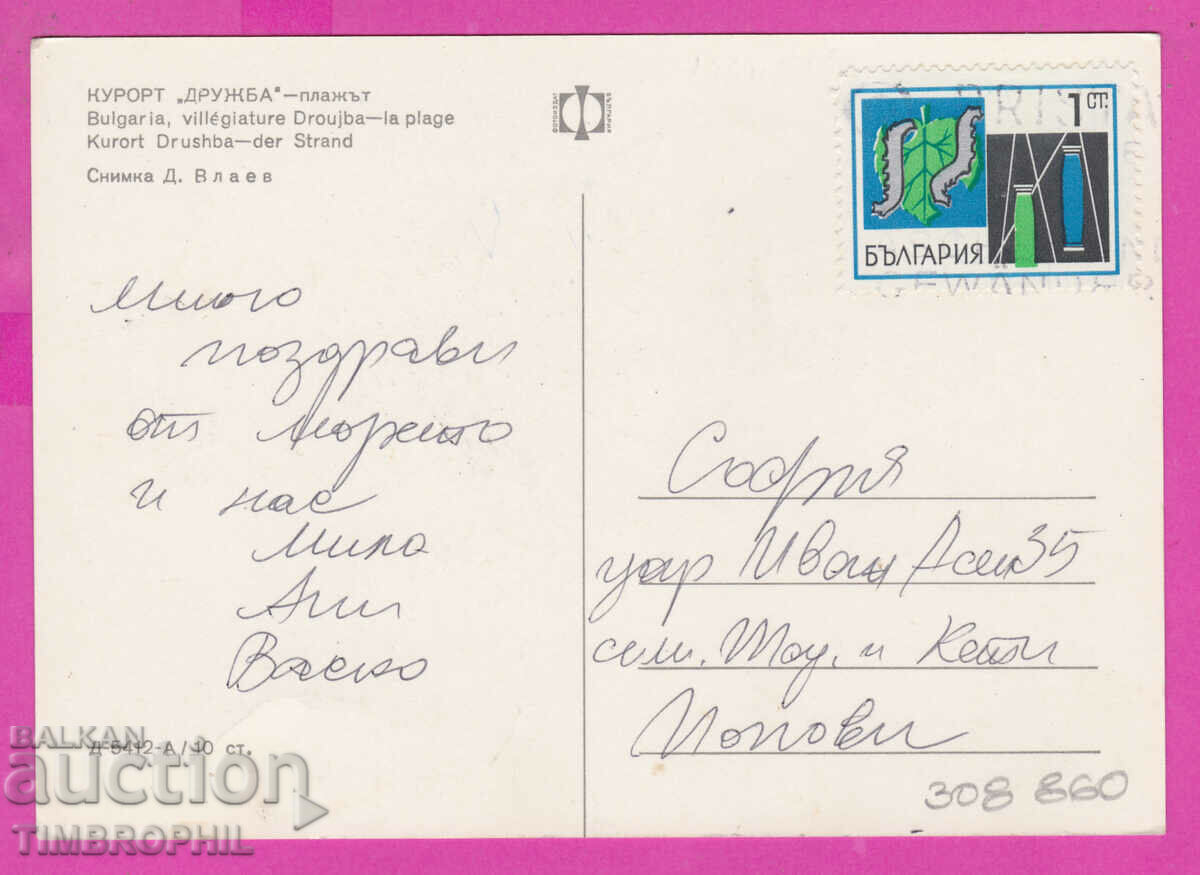 КУРОРТ „ДРУЖБА“—плажът
Bulgaria, villégiature Droujba—la plage
Kurort Drushba—der Strand
Снимка Д. Влаев
ФОТОИЗДАТ
БЪЛГАРИЯ
1 СТ.
БЪЛГАРИЯ
много
поздрави
от морето
и нас
Мила
Ани
Васко
София
цар Иван Асен 35
сем. и Кети
Попови
Д-5412-А/10 ст.
308 860
BALKAN
auction
TIMBROPHIL